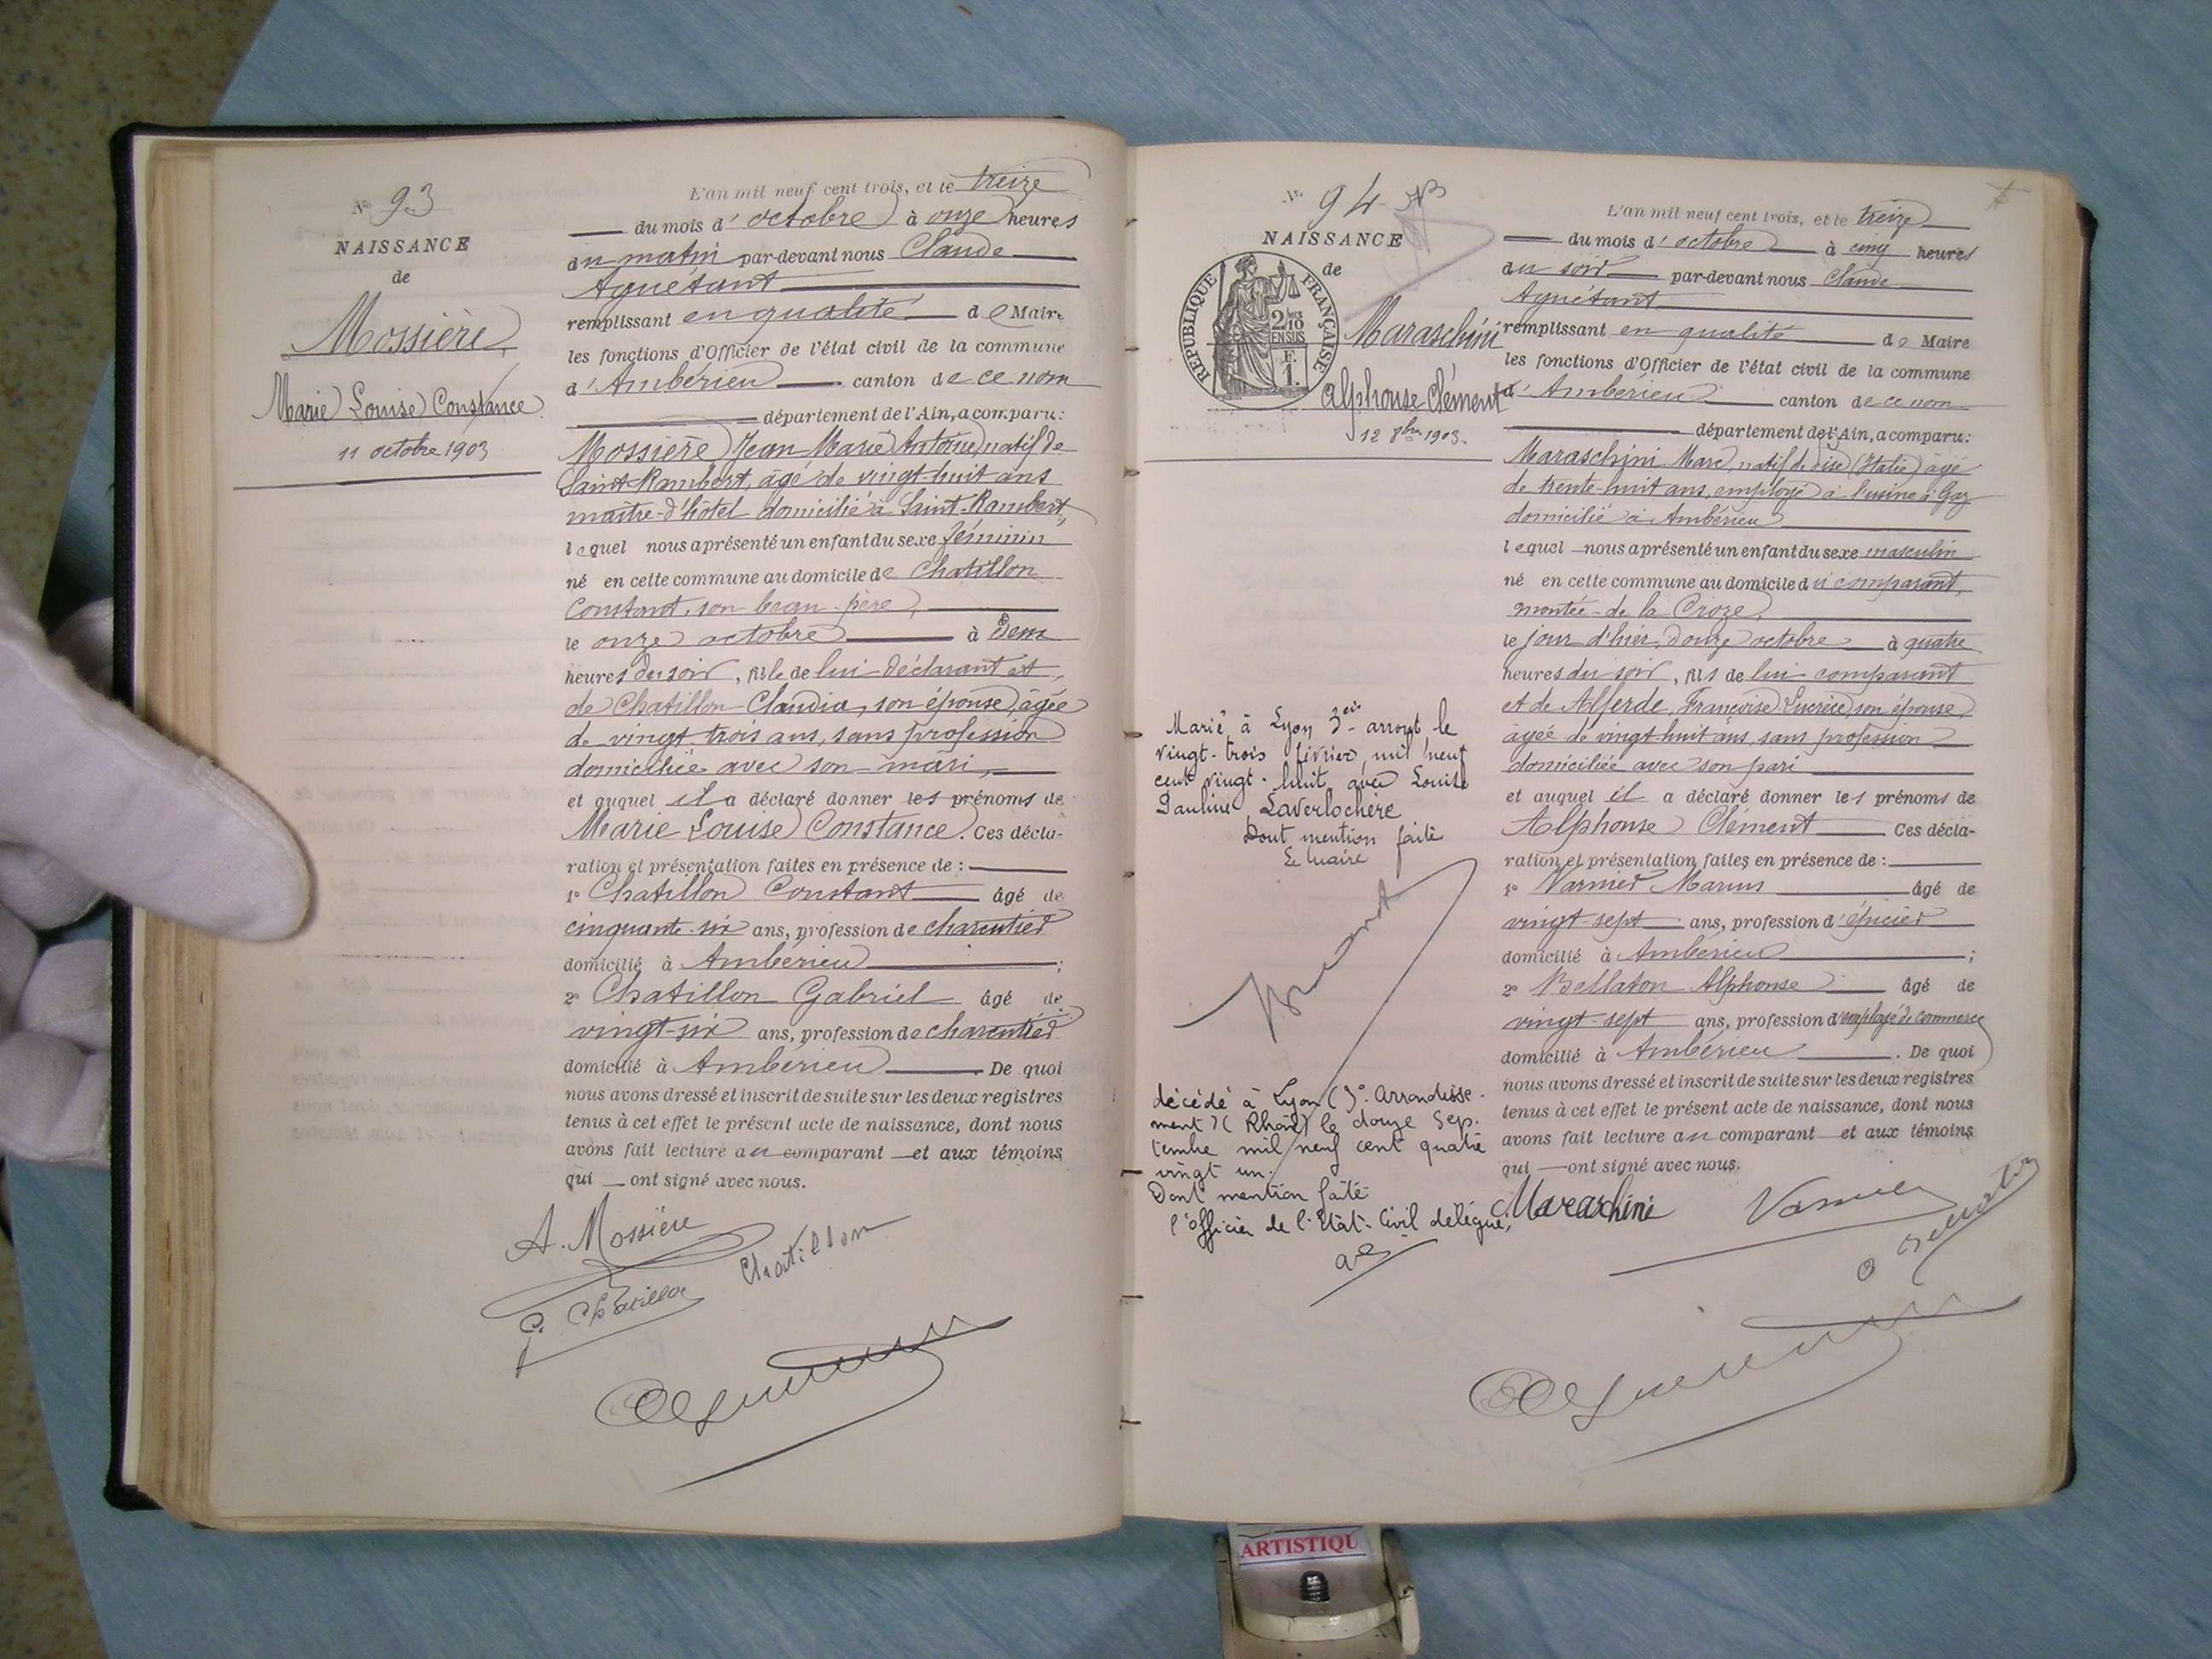 N° 93
NAISSANCE
de
Mossière
Marie Louise Constance
11 octobre 1903
L'an mil neuf cent trois, et le treize
du mois d'octobre à onze heures
du matin par-devant nous Claude
Aguétant
remplissant en qualité de Maire
les fonctions d'Officier de l'état civil de la commune
d'Ambérieu canton de ce nom
département de l'Ain, a comparu:
Mossière Jean Marie Antoine, natif de
Saint-Rambert, âgé de vingt-huit ans
maître-d'hôtel domicilié à Saint-Rambert,
lequel nous a présenté un enfant du sexe féminin
né en cette commune au domicile de Chatillon
Constant, son beau-père,
le onze octobre à
heures du soir, fille de lui déclarant et
de Chatillon Claudia, son épouse, âgée
de vingt trois ans, sans profession
domiciliée avec son mari,
et auquel il a déclaré donner les prénoms de
Marie Louise Constance. Ces décla-
ration et présentation faites en présence de :
1° Chatillon Constant âgé de
cinquante-six ans, profession de charcutier
domicilié à Ambérieu ;
2° Chatillon Gabriel âgé de
vingt-six ans, profession de charcutier
domicilié à Ambérieu. De quoi
nous avons dressé et inscrit de suite sur les deux registres
tenus à cet effet le présent acte de naissance, dont nous
avons fait lecture au comparant et aux témoins
qui ont signé avec nous.
A. Mossière
Chatillon
G. Chatillon
N° 94
NAISSANCE
de
RÉPUBLIQUE FRANÇAISE
2/10
EN SUS
F.
1.
Maraschini
Alphonse Clément
12 8bre 1903.
Marié à Lyon 3e arront le
vingt-trois février mil neuf
cent vingt-huit avec Louise
Pauline Laverlochère
Dont mention faite
Le Maire
décédé à Lyon (3e Arrondisse-
ment) (Rhône) le douze Sep-
tembre mil neuf cent quatre
vingt un.
Dont mention faite
l'Officier de l'Etat-Civil délégué,
L'an mil neuf cent trois, et le treize
du mois d'octobre à cinq heures
du soir par-devant nous Claude
Aguétant
remplissant en qualité de Maire
les fonctions d'Officier de l'état civil de la commune
d'Ambérieu canton de ce nom
département de l'Ain, a comparu:
Maraschini Marc, natif de (Italie) âgé
de trente-huit ans, employé à l'usine à Gaz
domicilié à Ambérieu
lequel nous a présenté un enfant du sexe masculin
né en cette commune au domicile du comparant,
montée de la Croze,
le jour d'hier, douze octobre à quatre
heures du soir, fils de lui comparant
et de Alferde, Françoise Lucrèce, son épouse,
âgée de vingt-huit ans, sans profession
domiciliée avec son pari
et auquel il a déclaré donner les prénoms de
Alphonse Clément Ces décla-
ration et présentation faites en présence de :
1° Varnier Marius âgé de
vingt-sept ans, profession d'épicier
domicilié à Ambérieu ;
2° Bellaton Alphonse âgé de
vingt-sept ans, profession d'employé de commerce
domicilié à Ambérieu. De quoi
nous avons dressé et inscrit de suite sur les deux registres
tenus à cet effet le présent acte de naissance, dont nous
avons fait lecture au comparant et aux témoins
qui ont signé avec nous.
Maraschini
Varnier
ARTISTIQU